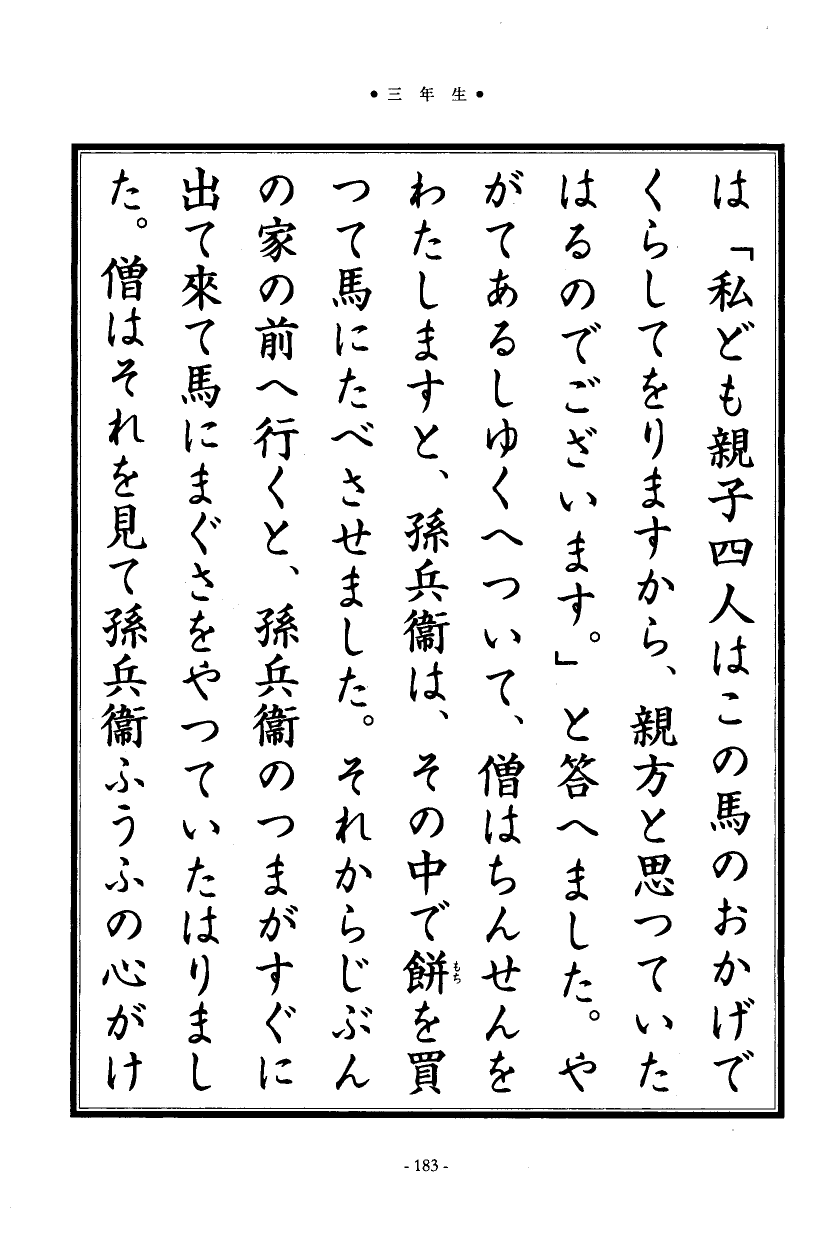 ●三年生●
は「私ども親子四人はこの馬のおかげで
くらしてをりますから、親方と思つていた
はるのでございます。」と答へました。や
がてあるしゆくへついて、僧はちんせんを
わたしますと、孫兵衞は、その中で餅を買
もち
つて馬にたべさせました。それからじぶん
の家の前へ行くと、孫兵衞のつまがすぐに
出て來て馬にまぐさをやつていたはりまし
た。僧はそれを見て孫兵衞ふうふの心がけ
- 183 -